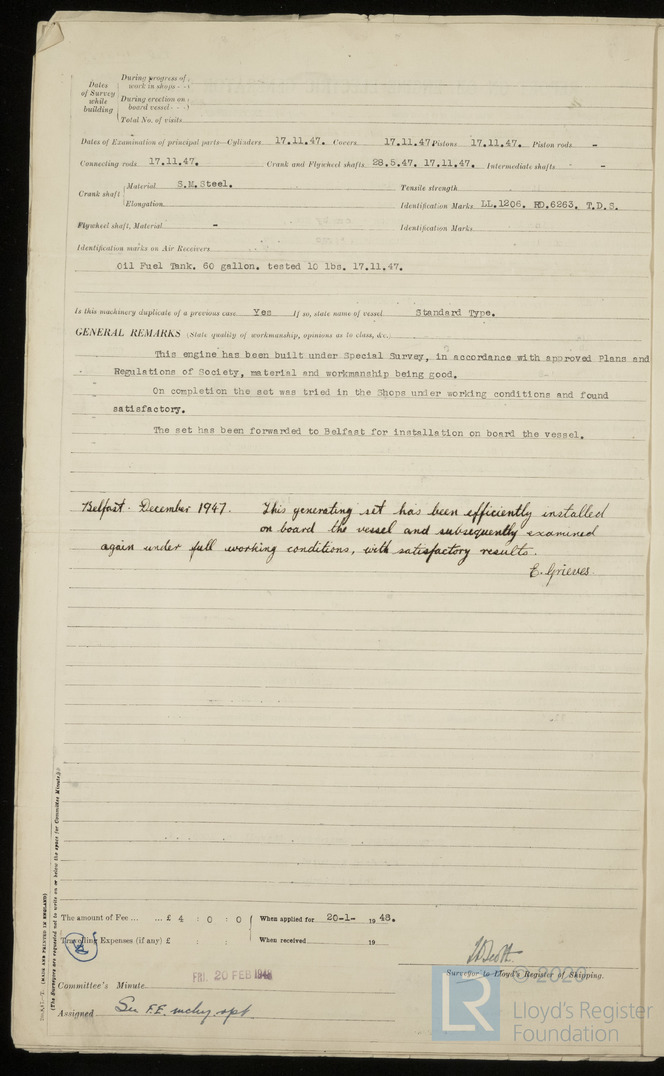 Dates of Survey while building
During progress of work in shops - -
During erection on board vessel - - -
Total No. of visits
Dates of Examination of principal parts—Cylinders 17.11.47. Covers 17.11.47. Pistons 17.11.47. Piston rods -
Connecting rods 17.11.47. Crank and Flywheel shafts 28.5.47. 17.11.47. Intermediate shafts -
Crank shaft Material S.M.Steel. Tensile strength
Elongation Identification Marks LL.1206. RD.6263. T.D.S.
Flywheel shaft, Material - Identification Marks
Identification marks on Air Receivers
Oil Fuel Tank. 60 gallon. tested 10 lbs. 17.11.47.
Is this machinery duplicate of a previous case Yes If so, state name of vessel Standard Type.
GENERAL REMARKS (State quality of workmanship, opinions as to class, &c.
This engine has been built under Special Survey, in accordance with approved Plans and
Regulations of Society, material and workmanship being good.
On completion the set was tried in the Shops under working conditions and found
satisfactory.
The set has been forwarded to Belfast for installation on board the vessel.
Belfast. December 1947. This generating set has been efficiently installed
on board the vessel and subsequently examined
again under full working conditions, with satisfactory results.
E. Grieves.
(MADE AND PRINTED IN ENGLAND)
(The Surveyors are requested not to write on or below the space for Committee Minute.)
The amount of Fee ... ... £ 4 : 0 : 0 When applied for 20-1- 1948.
Travelling Expenses (if any) £ : : When received 19
Surveyor to Lloyd's Register of Shipping.
Committee's Minute FRI. 20 FEB 1948
Assigned See F.E. mchy. rpt.
© 2020
LR Lloyd's Register
Foundation